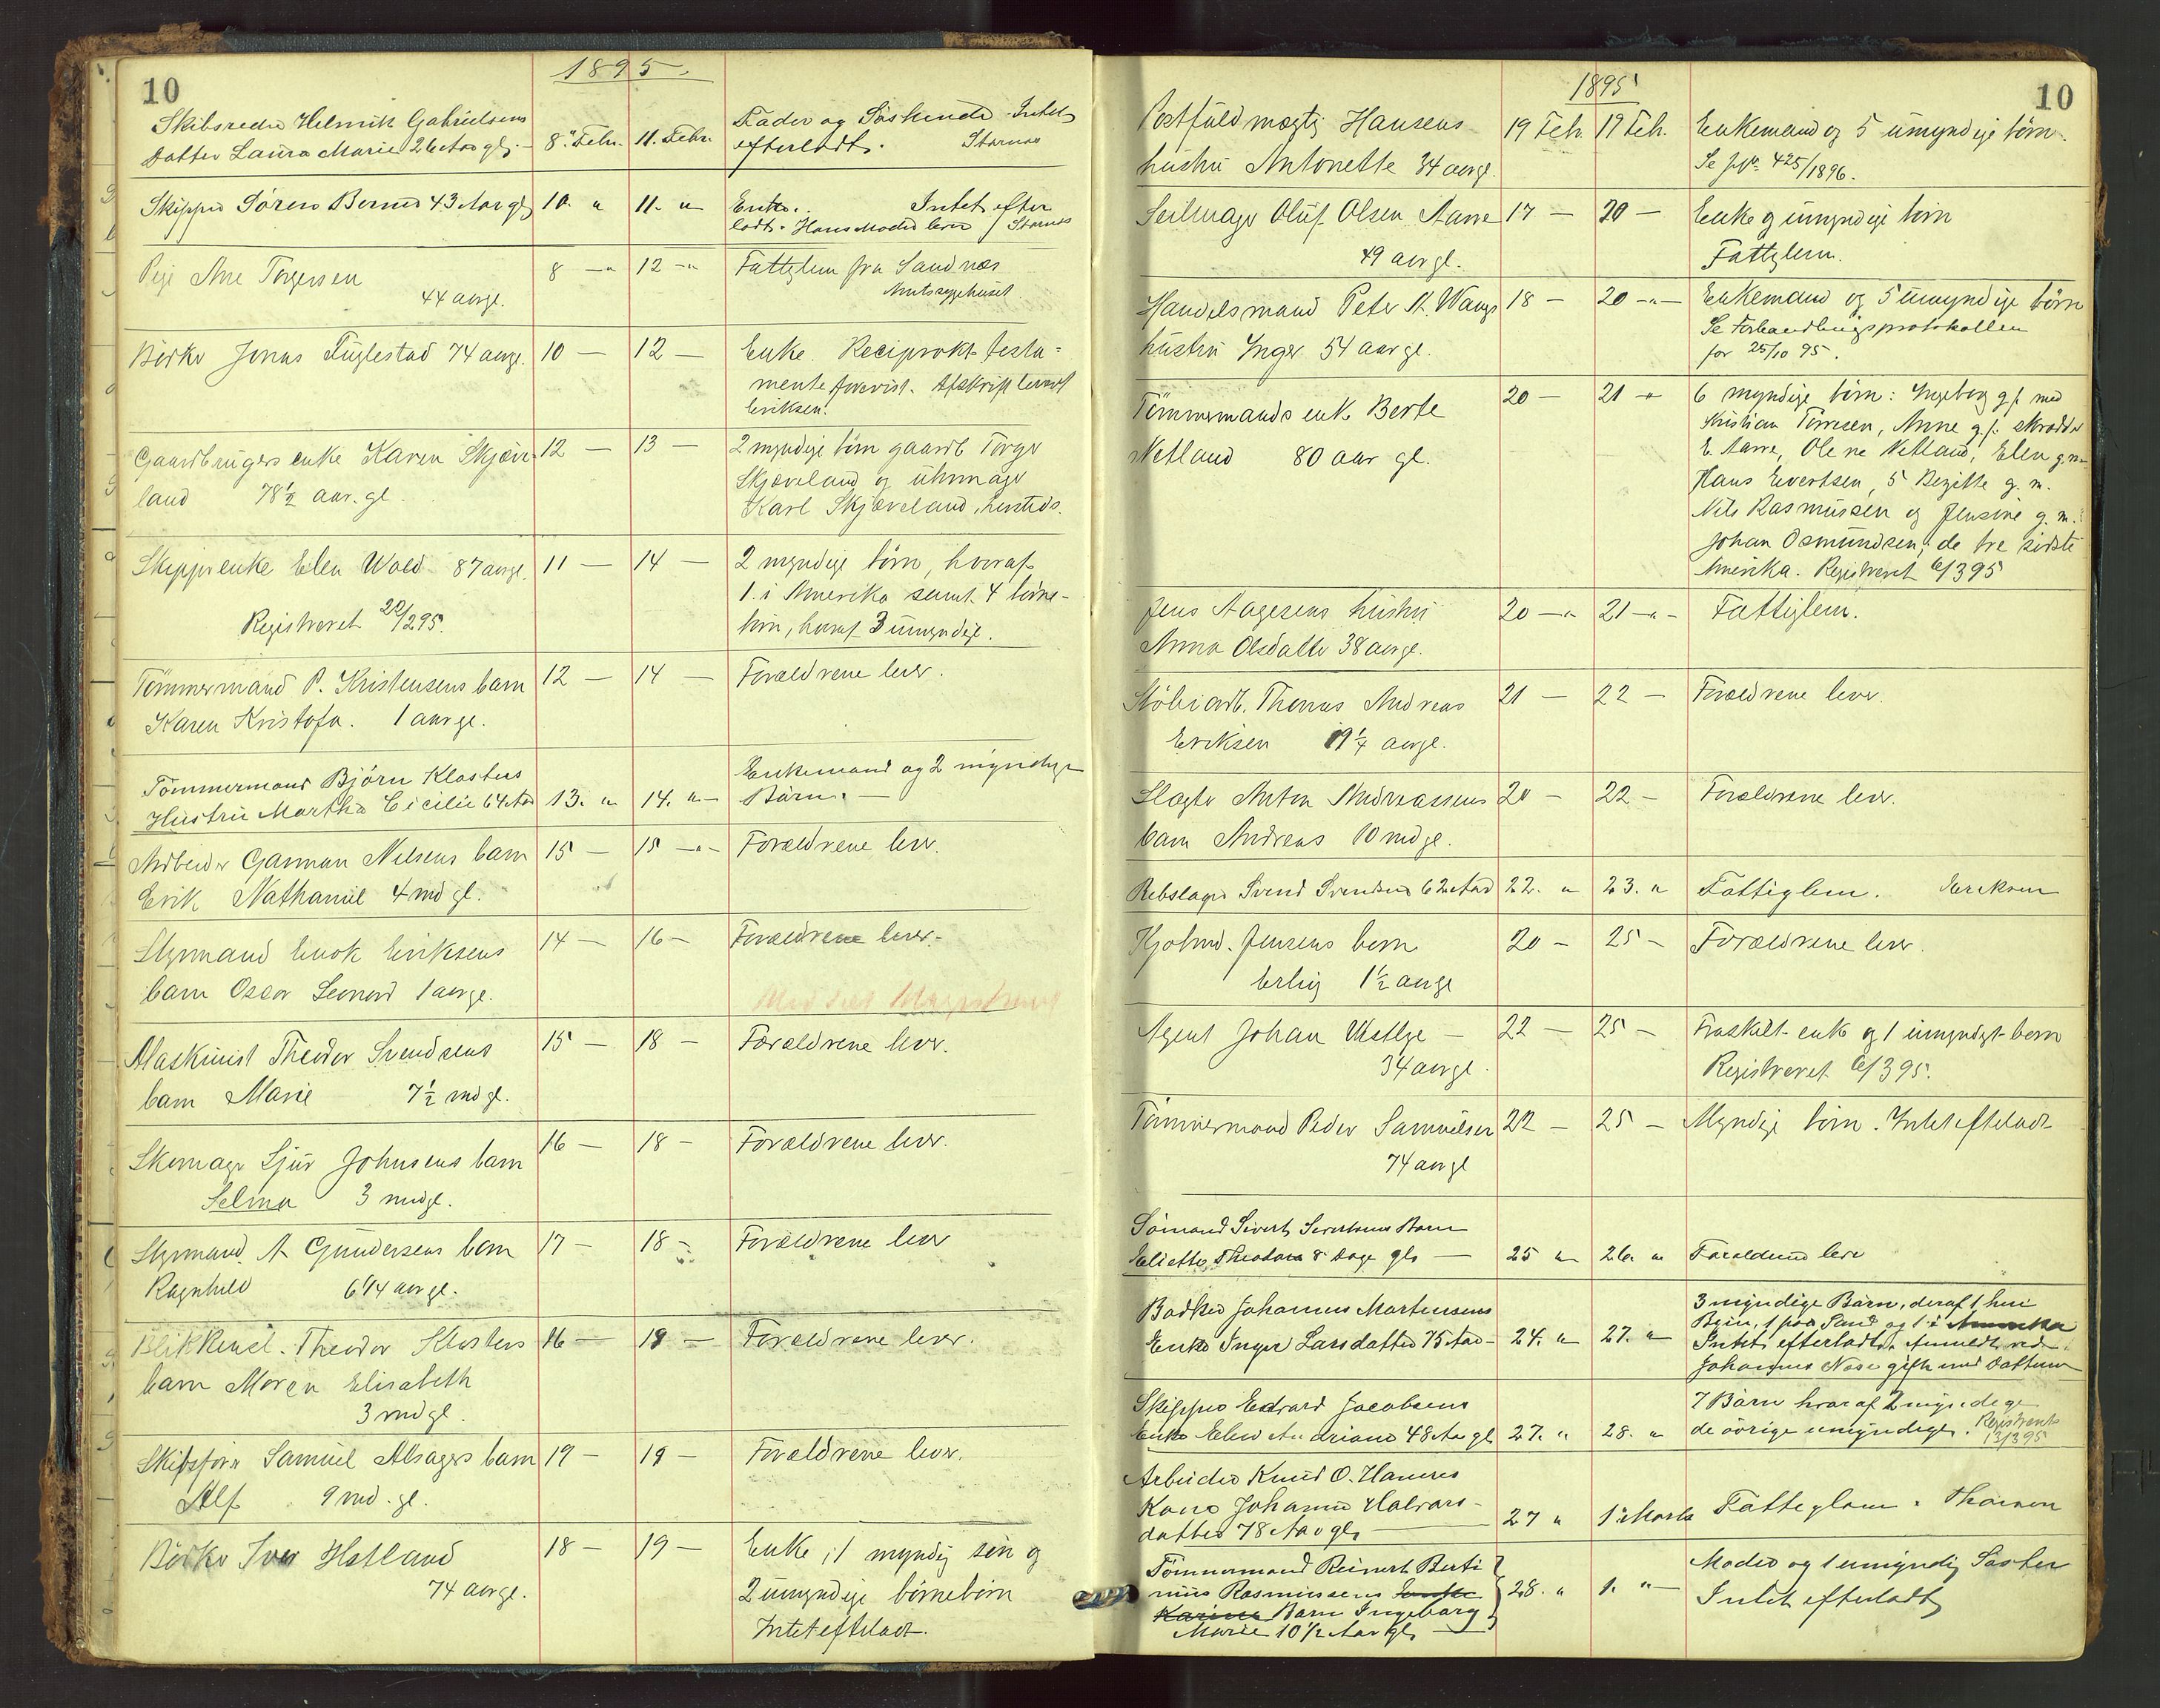 10
1895.
Skibsreder Helmik Gabrielsens
datter Laura Marie 26 Aar gl. 8de Febr. 11. Febr. Fader og Söskende Intet
efterladt.
Skipper Sören Bernes 43 Aar gl 10. " 11. " Enke. Intet efter
ladt. Hans Moder lever
Pige Ane Torgersen 8 —" 12 —" Fattiglem fra Sandnæs
44 aar gl. Amtssygehuset
Bödker Jonas Fuglestad 74 aar gl. 10 — 12 — Enke. Reciprokt testa-
mente forevist. Afskrift leveret
Eriksen.
Gaardbrugers enke Karen Skjæve- 12 — 13 — 2 myndige börn gaardb Torger
land 78½ aar. gl. Skjæveland og uhrmager
Karl Skjæveland, husteds.
Skipperenke Elen Wold 87 aar gl. 11 — 14 — 2 myndige börn, hvoraf
1 i Amerika samt 4 börne-
Registreret 20/2 95. börn, hvoraf 3 umyndige.
Tömmermand P. Kristensens barn 12 — 14 — Forældrene lever.
Karen Kristofa. 1 aar gl.
Tömmermand Björn Klosters Enkemand og 2 myndige
Hustru Martha Cicilie 64 Aar 13. " 14. " — Börn. —
Arbeider Garman Nilsens barn 15 — 15 —"— Forældrene lever.
Erik Nathaniel 4 md gl.
Styrmand Enok Eriksens 14 — 16 — Forældrene lever.
barn Oscar Leonard 1 aar gl.
Maskinist Theodor Svendsens 15 — 18 — Forældrene lever.
barn Marie 7½ md gl.
Skomager Sjur Johnsens barn 16 — 18 — Forældrene lever.
Selma 3 md gl.
Styrmand. A Gundersens barn 17 — 18 — Forældrene lever
Ragnhild 6 1/4 aar gl.
Blikkensl. Theodor Klosters 16 — 19 — Forældrene lever.
barn Maren Elisabeth
3 md gl.
Skibsförer Samuel Alsagers barn 19 — 19 — Forældrene lever.
Alf 9 md. gl.
Bödker Iver Hetland 18 — 19 — Enke, 1 myndig sön og
74 aar gl. 2 umyndige börnebörn
Intet efterladt.
1895
10
Postfuldmægtig Hansens 19 Feb. 19 Feb. Enkemand og 5 umyndige börn.
hustru Antonette 34 aar gl. 425/1896.
Seilmager Oluf Olsen Aarre 17 — 20 — Enke og umyndige börn
49 aar gl. Fattiglem.
Handelsmand Peter K. Wangs 18 — 20 —"— Enkemand og 5 umyndige börn
hustru Inger 54 aar gl. Se Forhandlingsprotokollen
for 25/10 95.
Tömmermands enke Berte 20 — 21 —" 6 myndige börn: Ingeborg gf. med
Netland 80 aar gl. Kristian Torresen, Anne gf. skrædder
E. Aarre, Olene Netland, Elen g.m.
Hans Evertsen, 5 Birgitte g. m.
Nils Rasmussen og Jensine g. m.
Johan Osmundsen, de tre sidste
Amerika. Registreret 6/3 95
Jens Aagesens hustru 20 —" 21 —"— Fattiglem.
Anna Olsdatter 38 aar gl.
Stöberiarb. Thomas Andreas 21 — 22 — Forældrene lever.
Eriksen 19¼ aar gl.
Slagter Anton Andreassens 20 — 22 — Forældrene lever.
barn Andreas 10 md gl.
Rebslager Svend Svendsen 62 Aar 22. " 23. " Fattiglem. Eriksen
Kjöbmd. Jensens barn 20 — 25 — Forældrene lever.
Erling 1½ aar gl
Agent Johan Vestbye — 22 — 25 — Fraskilt enke og 1 umyndigt barn
34 aar gl. Registreret 6/3 95.
Tömmermand Peder Samuelsen 22 — 25 — Myndige börn. Intet efterladt
74 aar gl
Sömand Sivert Sivertsens Barn
Eliette Theodora 8 Dage gl. — 25 " 26. " Forældrene lever
Bödker Johannes Mortensens 3 myndige Börn, deraf 1 her i
Byen, 1 paa Sand og 1 i Amerika
Enke Inger Larsdatter 75 Aar — 24. " 27. " Intet efterladt, Anmeldt ved
Johannes Næse gift med datteren
Skipper Edvard Jacobsens 7 Börn hvoraf 2 myndige
Enke Elen Andriane 48 Aar gl 27. " 28. " de övrige umyndige. Registreret
13/3 95
Arbeider Knud O. Hannes
Kone Johanne Halvors-
datter 78 Aar gl. 27 " 1ste Marts Fattiglem.
Tömmermand Reinert Berti
nius Rasmussens 28. " 1. "— Moder og 1 umyndig Söster
Karina Barn Ingeborg Intet efterladt
Marie 10 1/2 Aar gl.